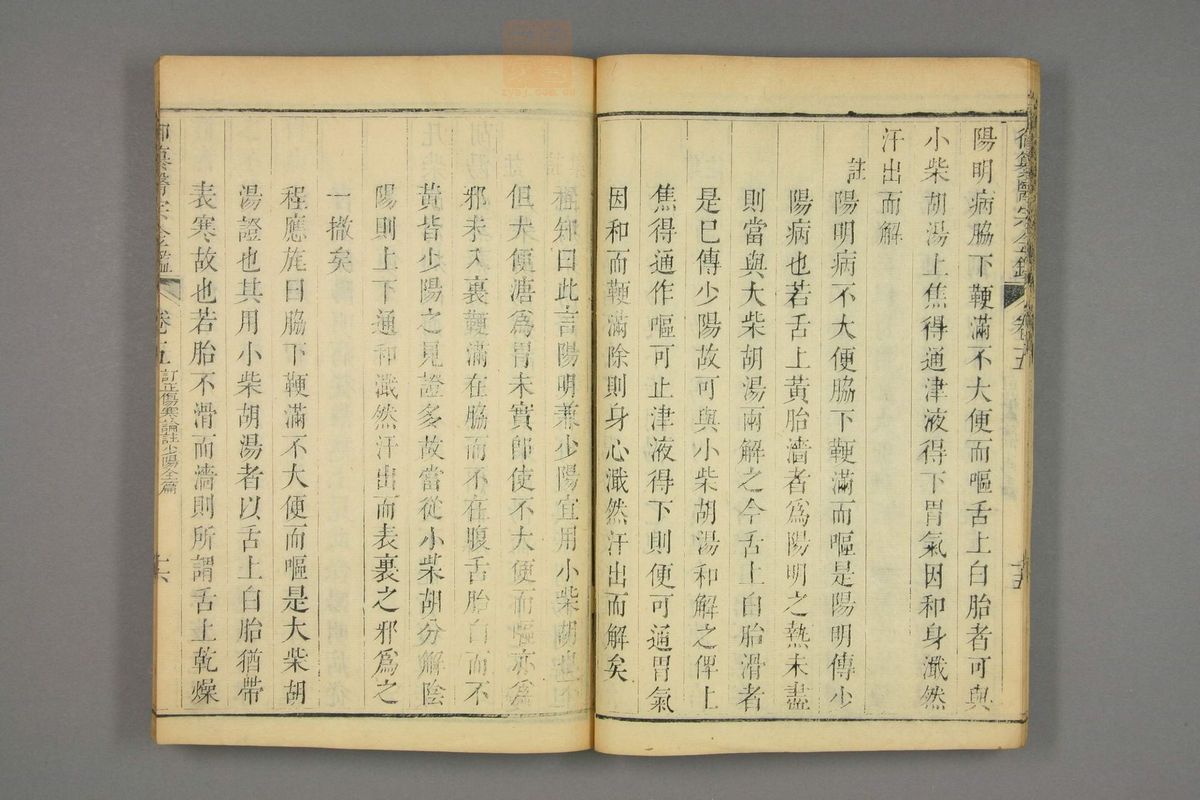 御纂醫宗金鑑 卷五 十五
陽明病脇下鞕滿不大便而嘔舌上白胎者可與
小柴胡湯上焦得通津液得下胃氣因和身濈然
汗出而解
註
陽明病不大便脇下鞕滿而嘔是陽明傳少
陽病也若舌上黃胎濇者爲陽明之熱未盡
則當與大柴胡湯兩解之今舌上白胎滑者
是已傳少陽故可與小柴胡湯和解之俾上
焦得通作嘔可止津液得下則便可通胃氣
因和而鞕滿除則身必濈然汗出而解矣
程知曰此言陽明兼少陽宜用小柴胡
但大便溏爲胃未實卽使不大便而嘔亦爲
邪未入裏鞕滿在脇而不在腹舌胎白而不
黃皆少陽之見證多故當從小柴胡分解陰
陽則上下通和濈然汗出而表裏之邪爲之
一撤矣
程應旄曰脇下鞕滿不大便而嘔是大柴胡
湯證也其用小柴胡湯者以舌上白胎猶帶
表寒故也若胎不滑而濇則所謂舌上乾燥
御纂醫宗金鑑 卷五 訂正傷寒論註少陽全篇 十六